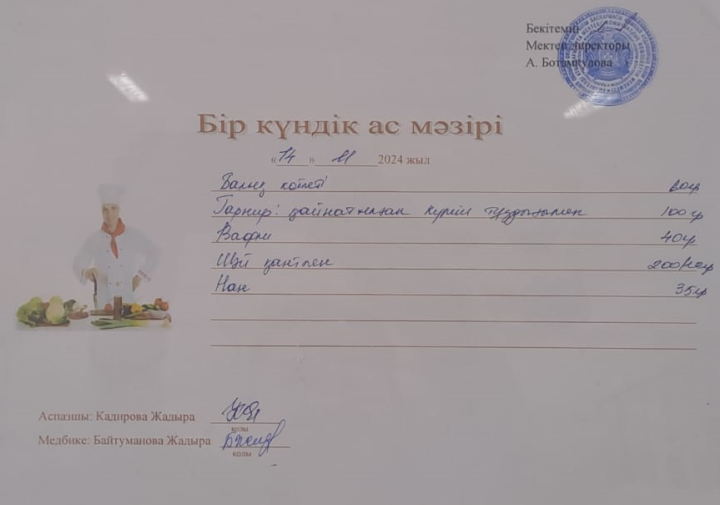 Бекітемін
Мектеп директоры
А. Ботамқулова
Бір күндік ас мәзірі
«14» 11 2024 жыл
Балық котлеті 60гр
Гарнир: қайнатылған күріш тұздықпен 100гр
Вафли 40гр
Шәй қантпен 200/4гр
Нан 35гр
Аспазшы: Кадирова Жадыра
қолы
Медбике: Байтуманова Жадыра
қолы